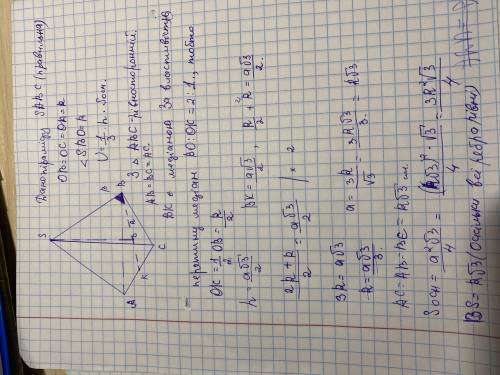 Дано: піраміда SABC (правильна)
OB=OC=OA=R
∠SBO=β
V=1/3 h·Sосн.
З △ ABC-рівносторонній.
AB=BC=AC.
BK є медіаною. За властивістю
перетину медіан BO:OK=2:1, тобто
OK=1/2 OB=R/2
h=a√3/2
BK=a√3/2, R/2+R=a√3/2.
2R+R/2=a√3/2 |×2
3R=a√3
a=3R/√3=3R√3/3=R√3
R=a√3/3.
AC=AB=BC=R√3 см.
Sосн=a²√3/4=(R√3)²·√3/4=3R²√3/4
BS=R√3 (оскільки всі ребра рівні)
S
β
B
O
R
C
K
A